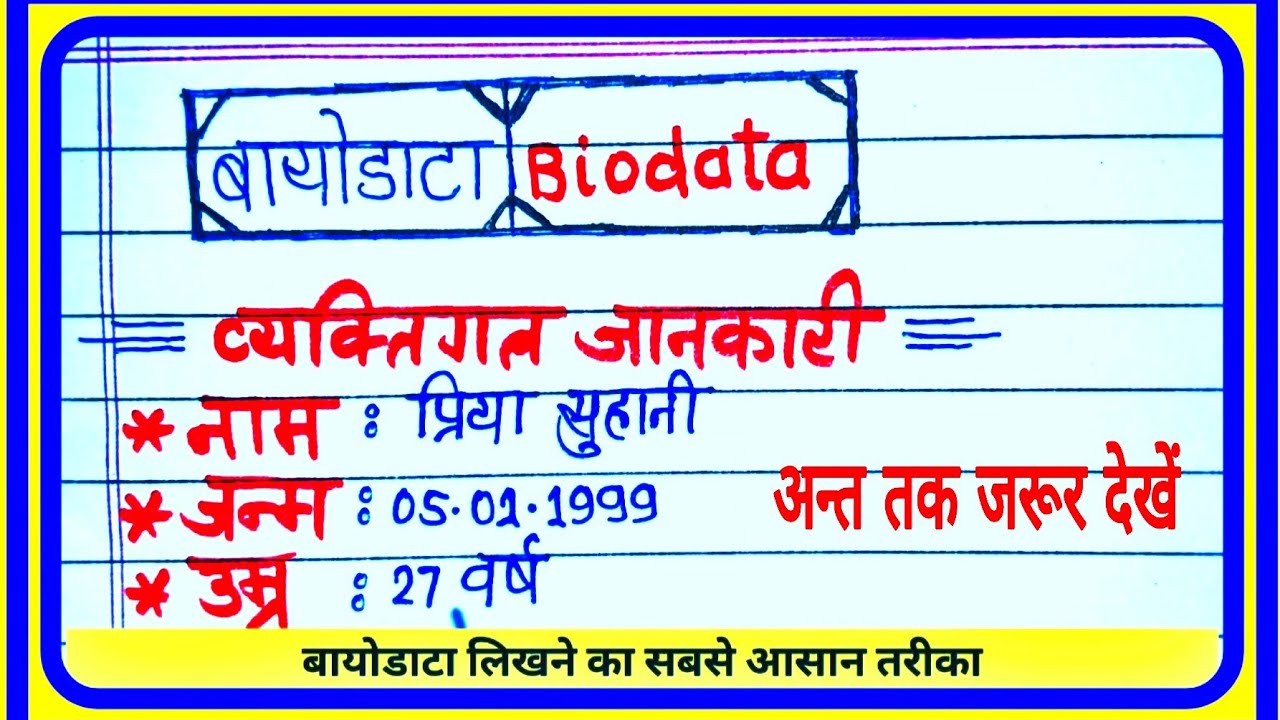 बायोडाटा Biodata
व्यक्तिगत जानकारी
* नाम : प्रिया सुहानी
* जन्म : 05.01.1999
अन्त तक जरूर देखें
* उम्र : 27 वर्ष
बायोडाटा लिखने का सबसे आसान तरीका